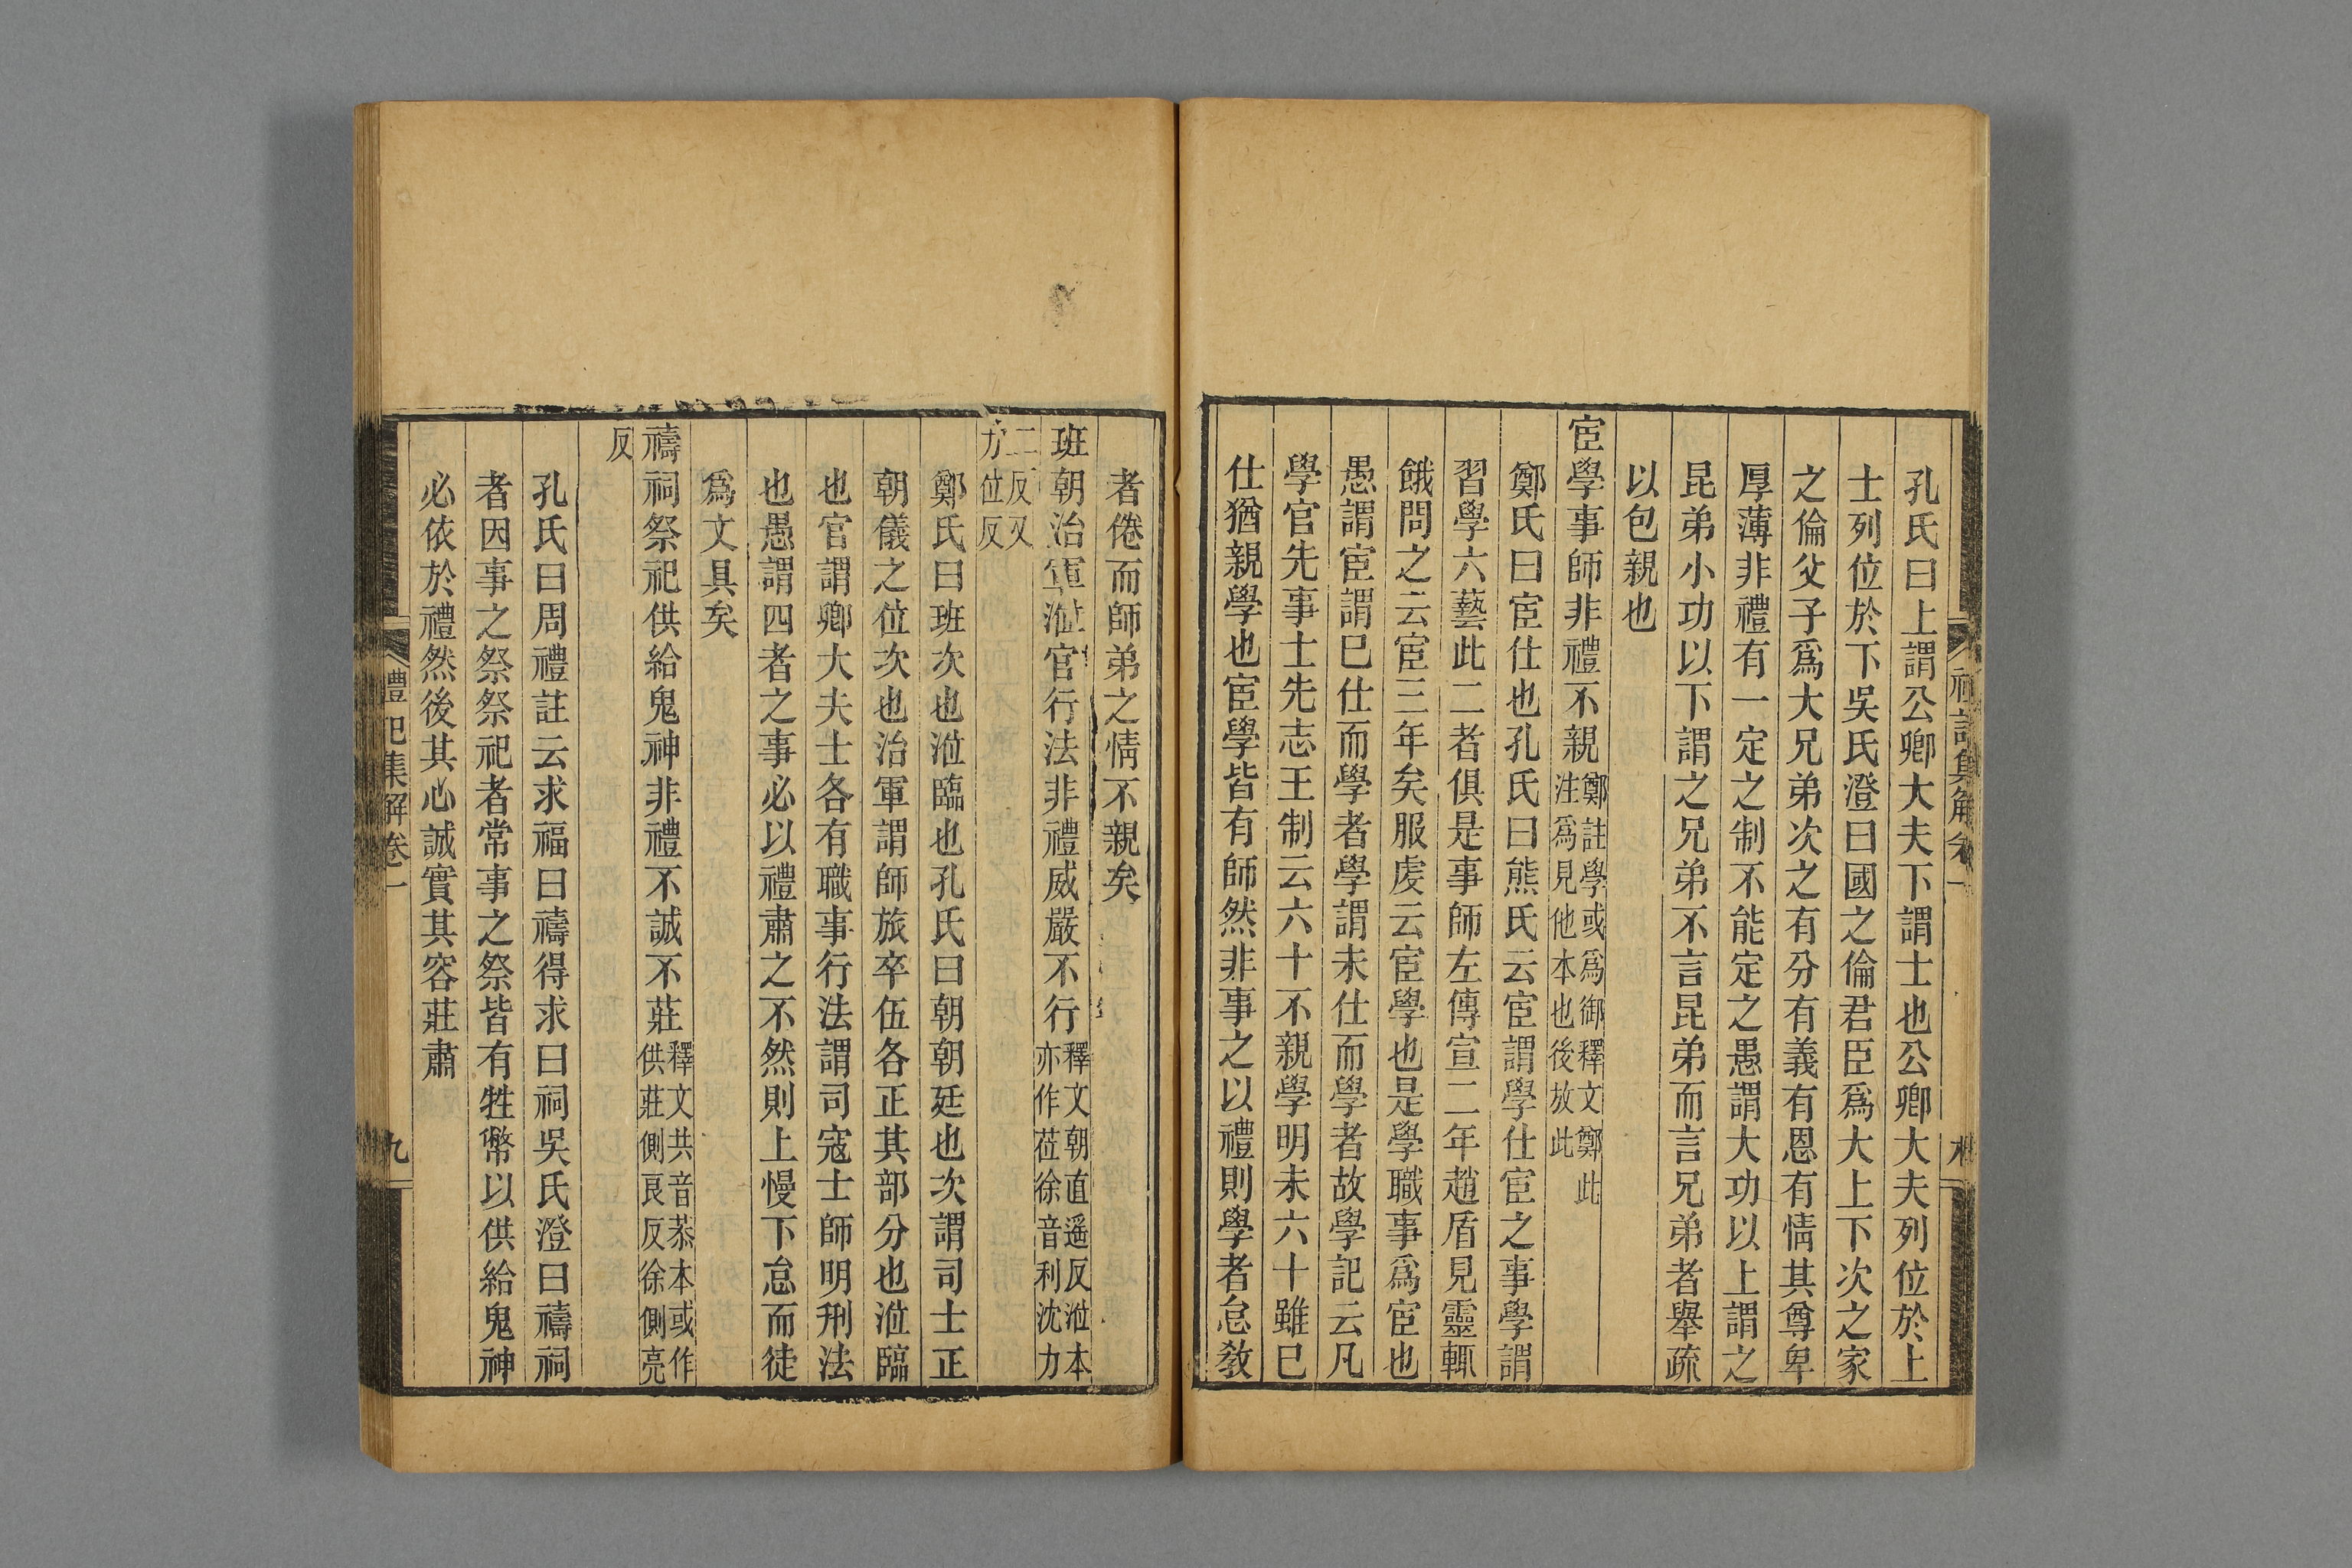 孔氏曰上謂公卿大夫下謂士也公卿大夫列位於上
士列位於下吳氏澄曰國之倫君臣爲大上下次之家
之倫父子爲大兄弟次之有分有義有恩有情其尊卑
厚薄非禮有一定之制不能定之愚謂大功以上謂之
昆弟小功以下謂之兄弟不言昆弟而言兄弟者舉疏
以包親也
宦學事師非禮不親鄭註學或爲御釋文鄭此
注爲見他本也後放此
鄭氏曰宦仕也孔氏曰熊氏云宦謂學仕宦之事學謂
習學六藝此二者俱是事師左傳宣二年趙盾見靈輒
餓問之云宦三年矣服虔云宦學也是學職事爲宦也
愚謂宦謂已仕而學者學謂未仕而學者故學記云凡
學官先事士先志王制云六十不親學明未六十雖已
仕猶親學也宦學皆有師然非事之以禮則學者怠教
者倦而師弟之情不親矣
班朝治軍涖官行法非禮威嚴不行釋文朝直遥反涖本
亦作莅徐音利沈力
二反又
力位反
鄭氏曰班次也涖臨也孔氏曰朝朝廷也次謂司士正
朝儀之位次也治軍謂師旅卒伍各正其部分也涖臨
也官謂卿大夫士各有職事行法謂司寇士師明刑法
也愚謂四者之事必以禮肅之不然則上慢下怠而徒
爲文具矣
禱祠祭祀供給鬼神非禮不誠不莊釋文共音恭本或作
供莊側良反徐側亮
反
孔氏曰周禮註云求福曰禱得求曰祠吳氏澄曰禱祠
者因事之祭祭祀者常事之祭皆有牲幣以供給鬼神
必依於禮然後其心誠實其容莊肅
禮記集解卷一
九